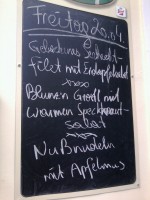 Freitag 20.4
Gebackenes Seehecht-
filet mit Erdäpfelsalat
Blunen Gröstl mit
warmen Speckkraut-
salat
Nußnudeln
mit Apfelmus